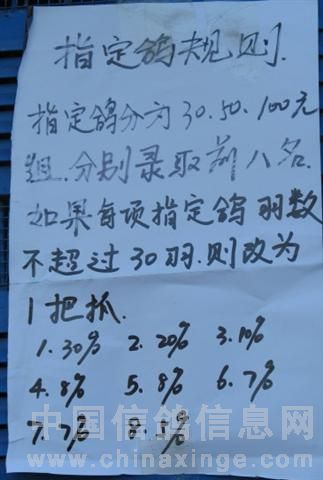 指定鸽规则.
指定鸽分为30.50.100元
组.分别录取前八名.
如果每项指定鸽羽数
不超过30羽.则改为
1把抓.
1.30% 2.20% 3.10%
4.8% 5.8% 6.7%
7.7% 8.
中国信鸽信息网
www.chinaxinge.com